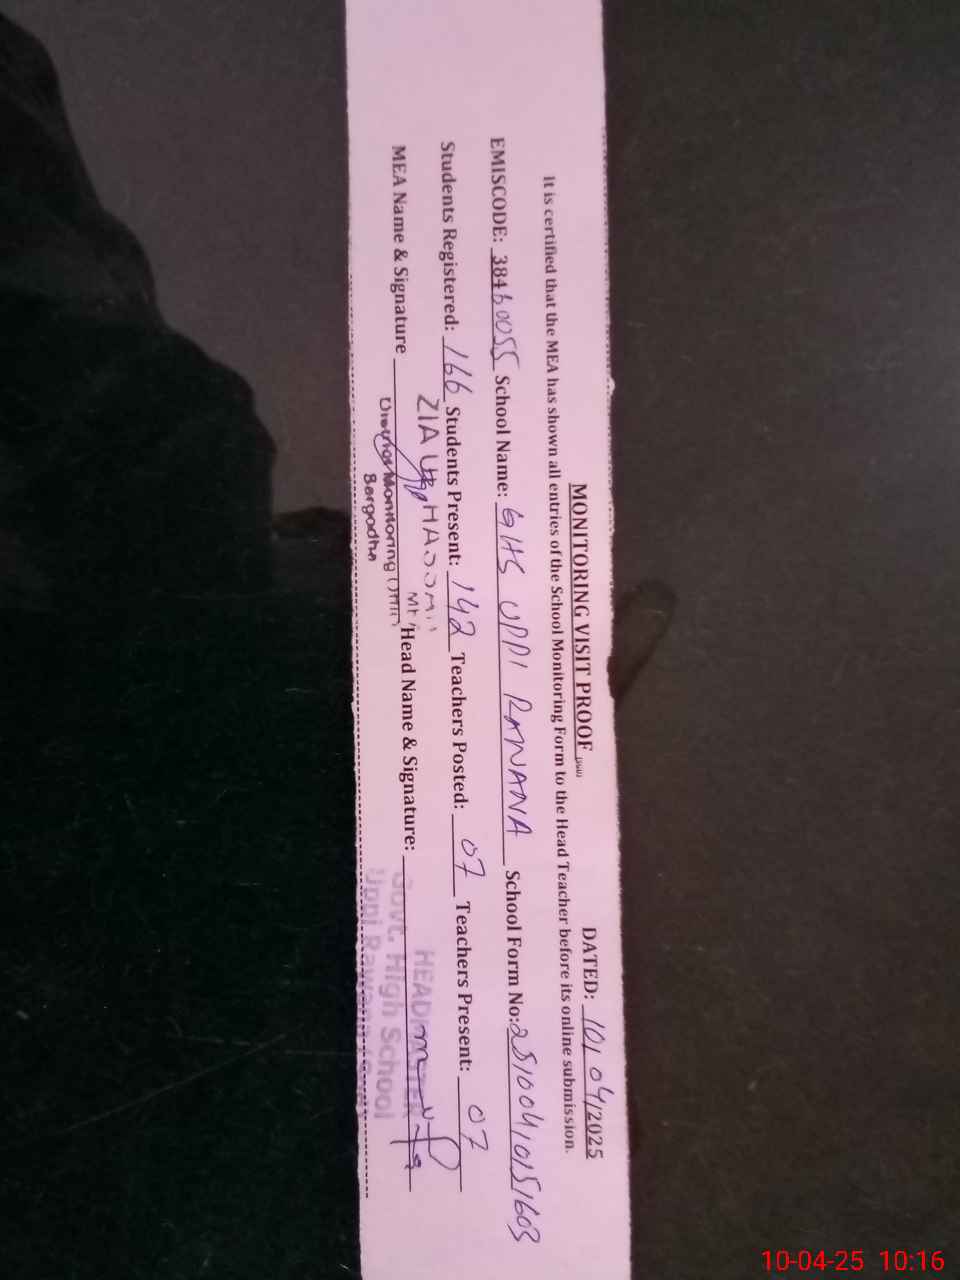 MONITORING VISIT PROOF
DATED: 10/04/2025
It is certified that the MEA has shown all entries of the School Monitoring Form to the Head Teacher before its online submission.
EMISCODE: 38460055 School Name: GHS UPPI RAWANA School Form No:
Students Registered: 166 Students Present: 142 Teachers Posted: 07 Teachers Present: 07
MEA Name & Signature Head Name & Signature:
ZIA
Monitoring
Sargodha
HEADMASTER
Govt. High School
Uppi Rawana
10-04-25 10:16